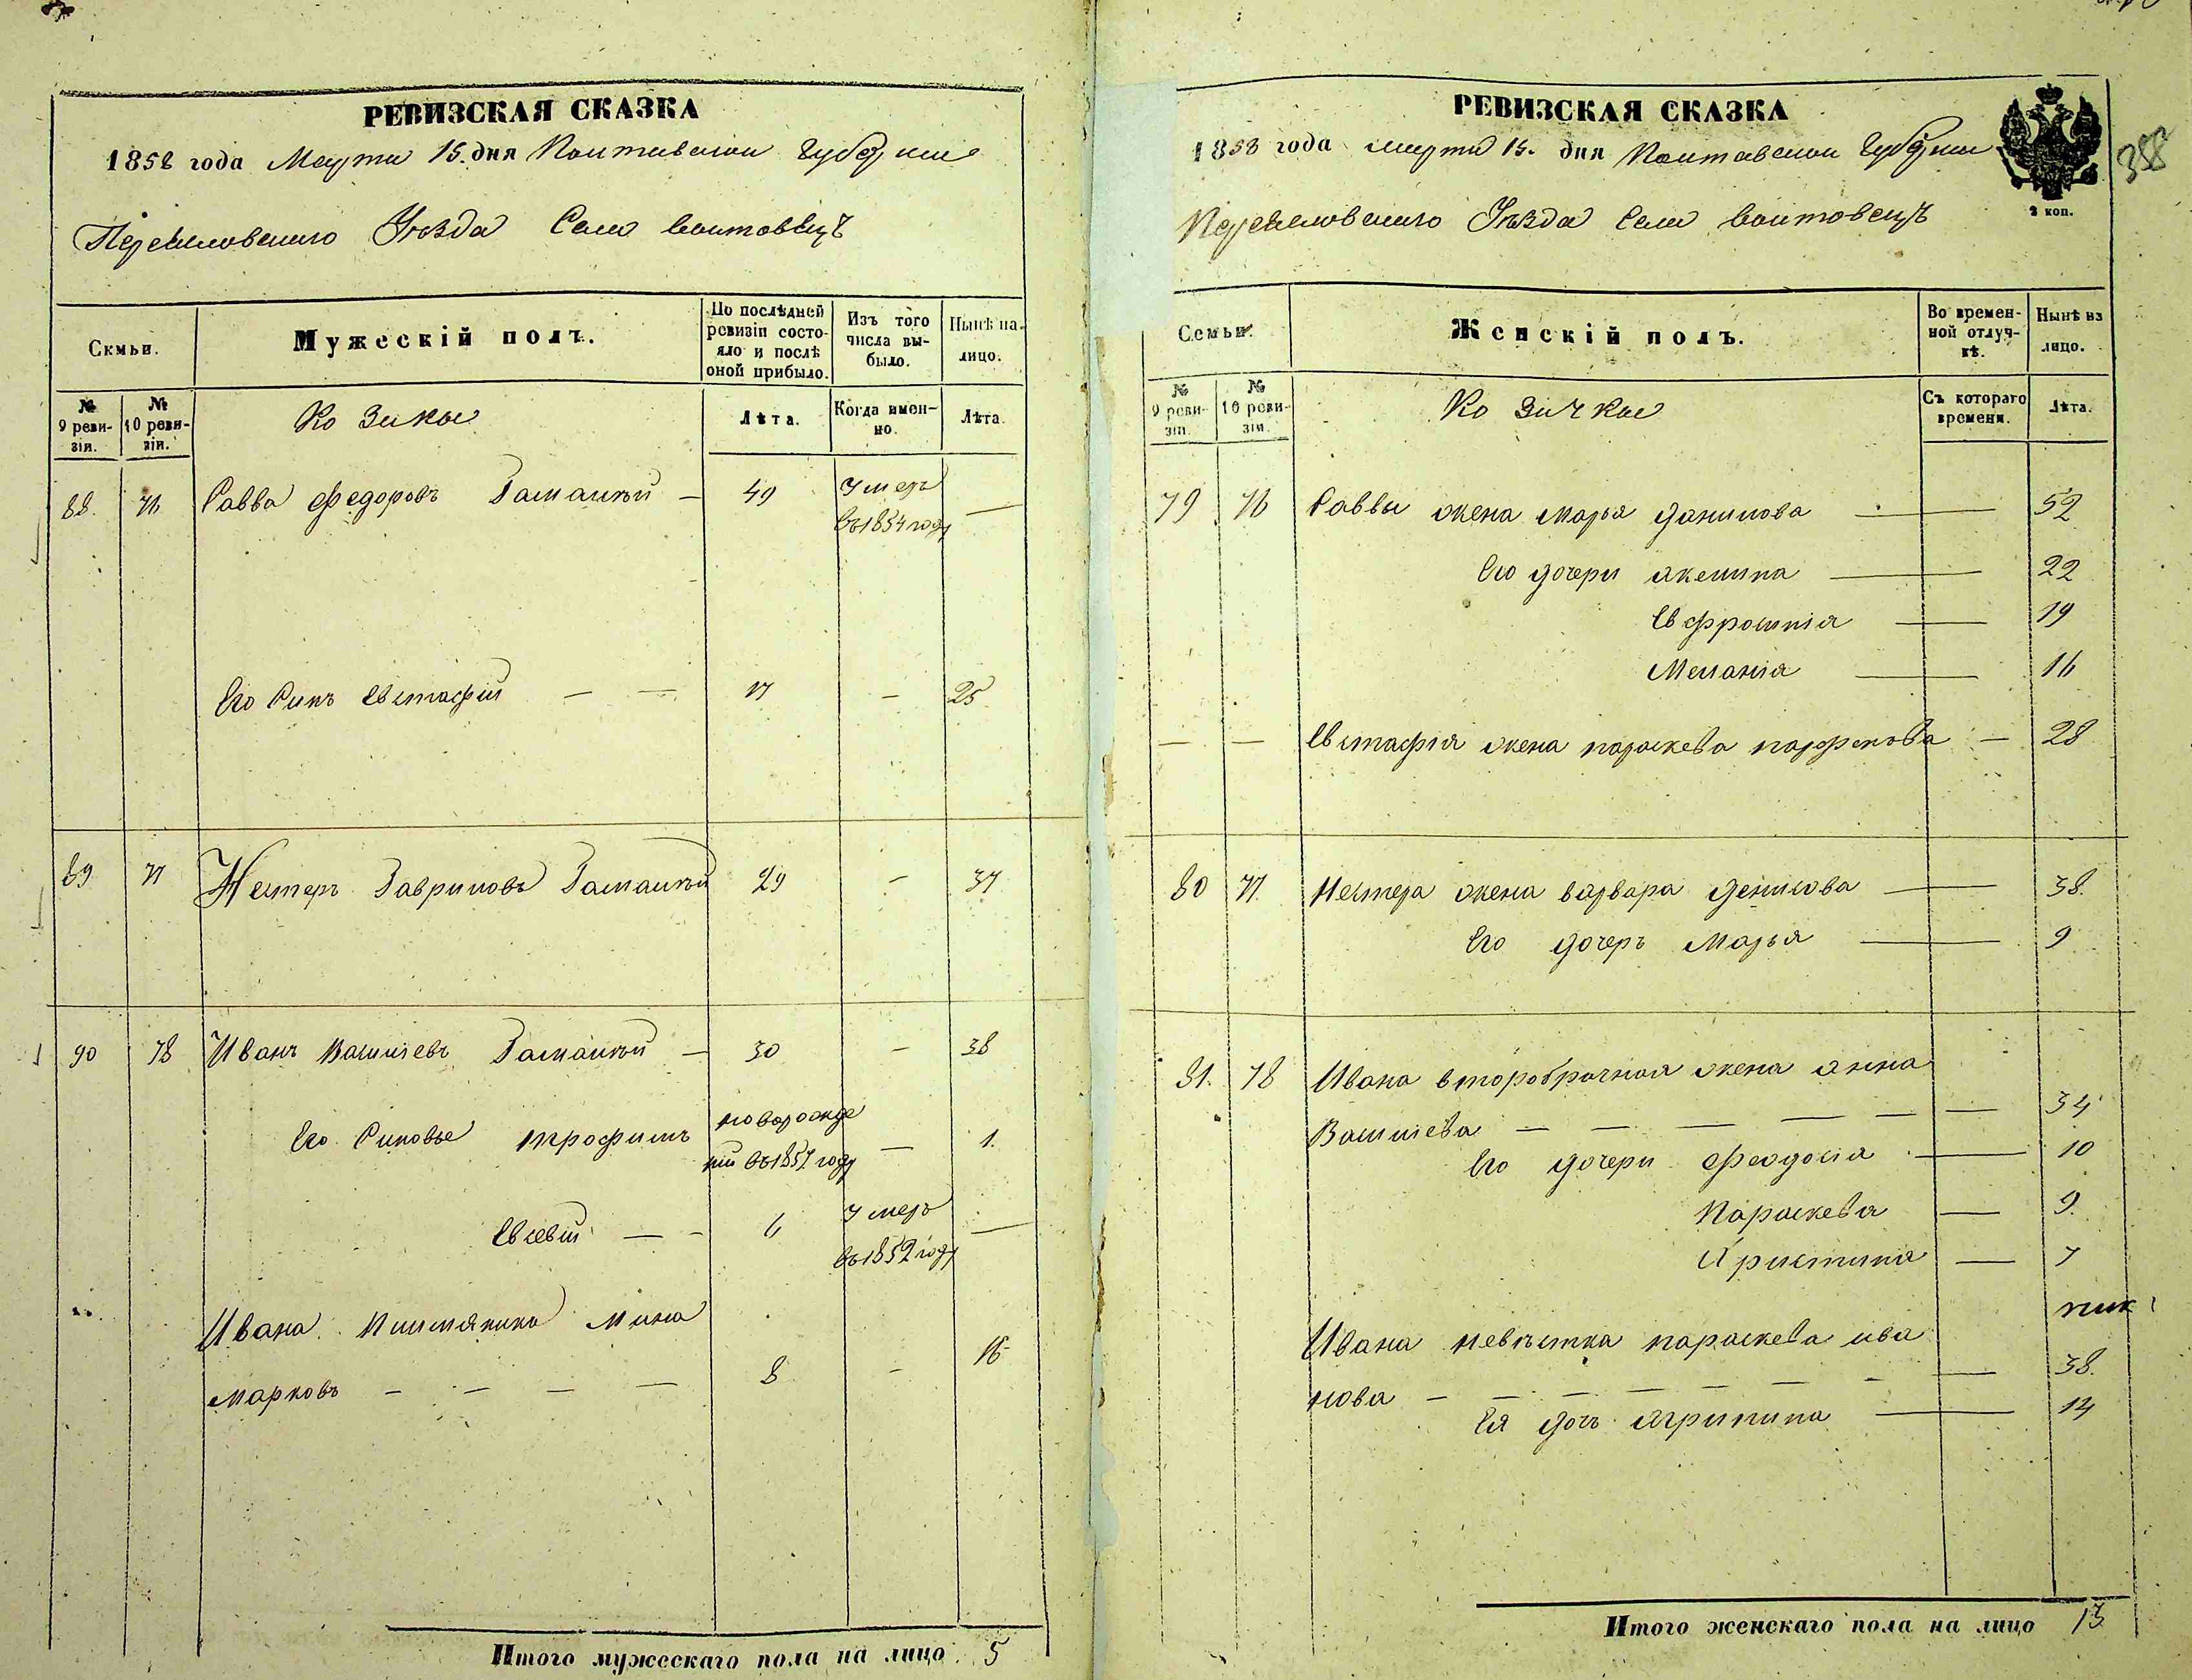 РЕВИЗСКАЯ СКАЗКА
1858 года Марта 15. дня Полтавской Губерніи
Переяславскаго Уѣзда Села Войтовецъ
Семьи.
Мужескій полъ.
По послѣдней ревизіи состо-
яло и послѣ оной прибыло.
Изъ того числа вы-
было.
Нынѣ на-
лицо.
№ 9 реви-
зіи.
№ 10 реви-
зіи.
Козаки
Лѣта.
Когда имен-
но.
Лѣта.
88. 76 Савва Федоровъ — 49 Умеръ
въ 1854 году —
Его Синъ Евстафій — — 17 — 25
89 77 Нестеръ Гавриловъ 29 — 37
90 78 Иванъ Василіевъ — 30 — 38
Его Синовье Трофимъ новорожде
ній въ 1857 году — 1.
Евсевій — - 6 Умеръ
въ 1852 году —
Ивана Мина
Марковъ — — — — 8 — 16
Итого мужескаго пола на лицо 5
РЕВИЗСКАЯ СКАЗКА
1858 года Марта 15. дня Полтавской Губерніи
2 коп.
388
Переяславскаго Уѣзда Села Войтовецъ
Семьи.
Женскій полъ.
Во времен-
ной отлуч-
кѣ.
Нынѣ на
лицо.
№ 9 реви-
зіи.
№ 10 реви-
зіи.
Козачки
Съ котораго
времени.
Лѣта.
79 76 Саввы жена Марья Данилова — 52
Его дочери Акелина — 22
Евфросинія — 19
Меланія — 16
— — Евстафія жена Параскева Парфенова — 28
80 77. Нестера жена Варвара Денисова — 38.
Его дочеръ Марья — 9
81. 78 Ивана второбрачная жена Анна
Василіева — — — — — — 34
Его дочери Феодосія — 10
Параскевія — 9.
Христина — 7
Ивана невѣстка Параскева Ива
нова — — — — — — — — 38.
Ея дочь Агрипина — 14
Итого женскаго пола на лицо 13